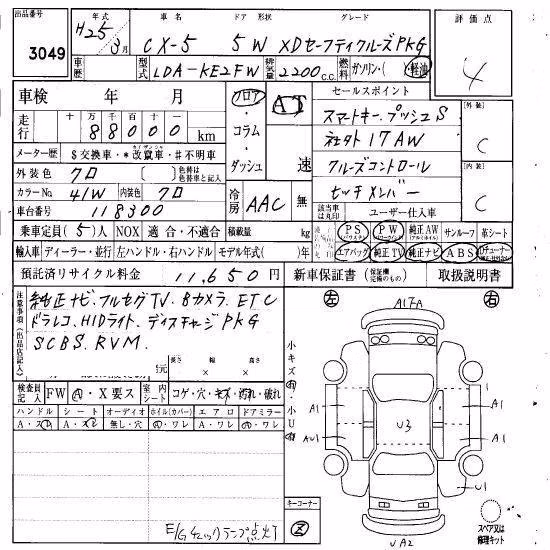 出品番号 3049
年式 H25 3月 車名 CX-5 ドア 形状 5W グレード XDセーフティクルーズPKG
評価点 4
車歴 型式 LDA-KE2FW 排気量 2200 c.c. 燃料 ガソリン・(軽油)
車検 年 月
フロア・コラム・ダッシュ
AT 速
セールスポイント
スマートキー.プッシュS
社外17AW
クルーズコントロール
外装 C
内装 C
走行 十 万 千 百 十
88000 km
メーター歴 $交換車・*改竄車・#不明車
外装色 クロ 色替車と記入
カラーNo. 41W 内装色 クロ
車台番号 118300
冷房 AAC 無
該当車は丸印 ユーザー仕入車
乗車定員 (5)人 NOX 適合・不適合 積載量 kg
PS PW 純正AW サンルーフ 革シート
輸入車 ディーラー・並行 左ハンドル・右ハンドル モデル年式( )年
エアバッグ 純正TV 純正ナビ ABS
預託済リサイクル料金 11,650円
新車保証書 取扱説明書
注意事項(出品店記入)
純正ナビ.フルセグTV.Bカメラ.ETC
ドラレコ.HIDライト.ディスチャージPKG
SCBS.RVM.
長さ 幅 高さ
× ×
検査員記入 FW A・X要ス 室内シート コゲ・穴・キズ・汚れ・破れ
ハンドル シート オーディオ ホイル(カバー) エアロ ドアミラー
無し・穴 A・ワレ A・ワレ A・ワレ
E/Gチェックランプ点灯
左 右
A1
A1
AU1
U3
U1
UA2
キーコーナー
スペア又は修理キット